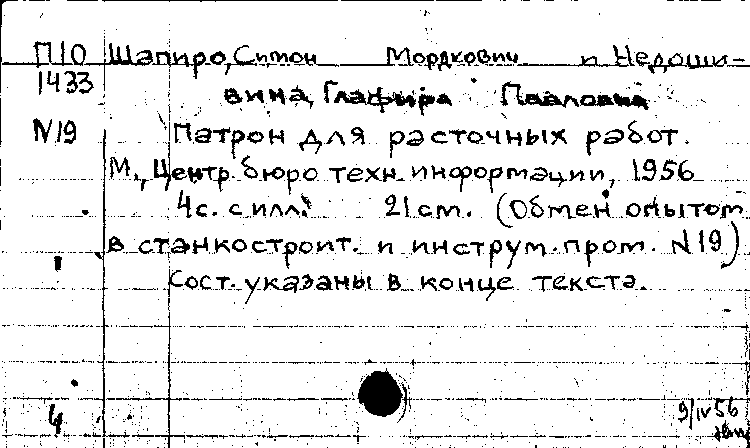 П10 Шапиро, Симон Мордкович и Недоши-
1433 вина, Глафира Павловна
N19 Патрон для расточных работ.
М., Центр. бюро техн. информации, 1956
4с. с илл. 21см. (Обмен опытом
в станкостроит. и инструм. пром. N19)
Сост. указаны в конце текста.
4
9/IV 56